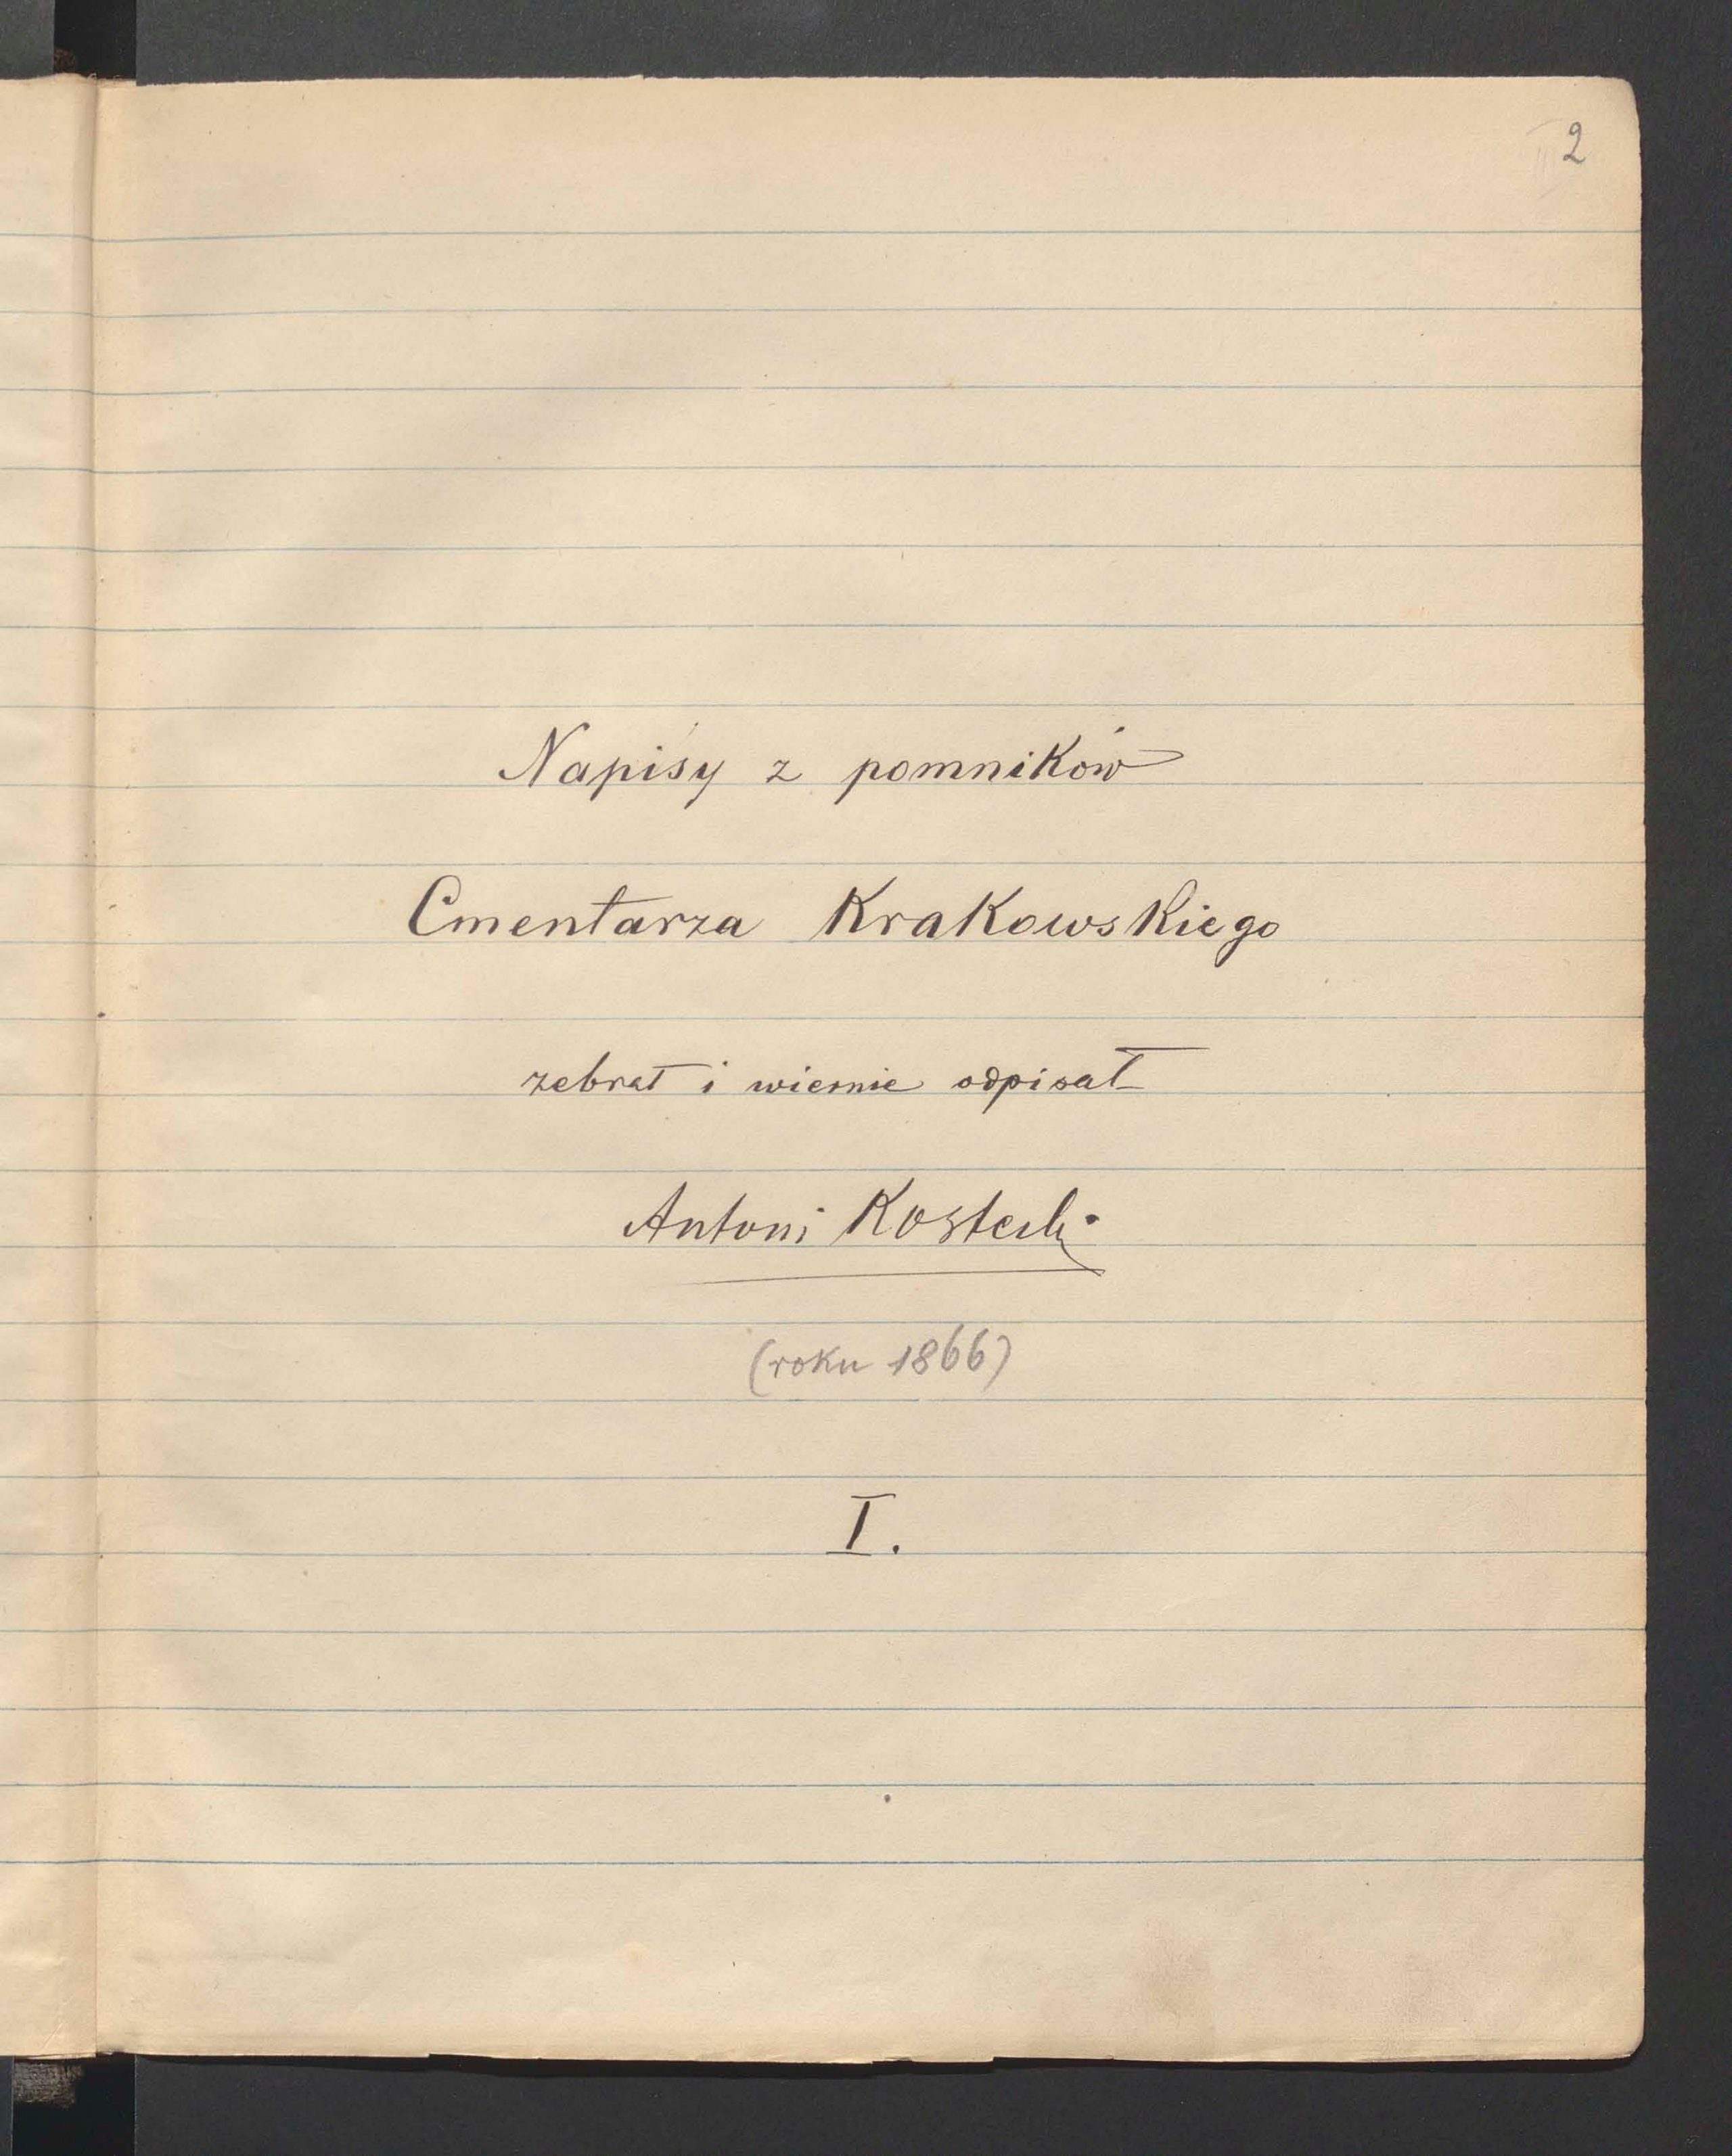 2
Napisy z pomników
Cmentarza Krakowskiego
zebrał i wiernie odpisał
Antoni Kostecki
(roku 1866)
I.